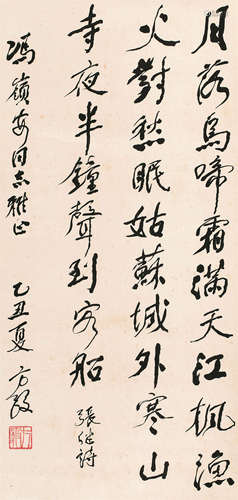 月落烏啼霜滿天江楓漁
火對愁眠姑蘇城外寒山
寺夜半鐘聲到客船
張继詩
馮嶺安同志雅正
乙丑夏方毅